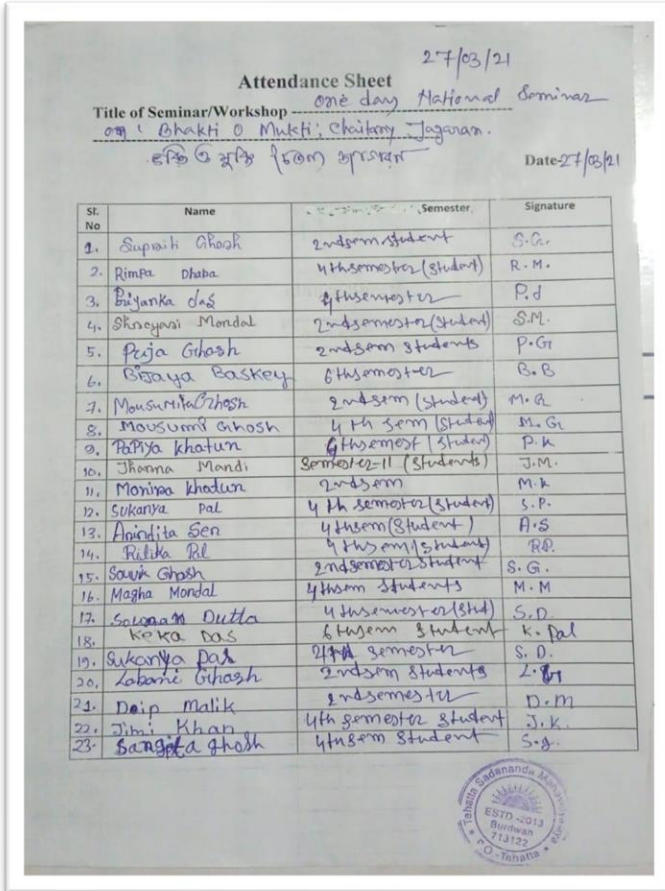 27/03/21
Attendance Sheet
Title of Seminar/Workshop one day National Seminar
on ' Bhakti O Mukti; Chaitany Jagaran.
ভক্তি ও মুক্তি জাগরণ
Date-27/03/21
Sl. No Name Semester Signature
1. Supraiti Ghosh 2ndsem student S.G.
2. Rimpa Dhaba 4thsemester (Student) R.M.
3. Priyanka das 4thsemester P.d
4. Shreyasi Mondal 2ndsemester (Student) S.M.
5. Puja Ghosh 2ndsem Students P.G
6. Bijaya Baskey 6thsemester B.B
7. Mousumita Ghosh 2ndsem (Student) M.G
8. Mousumi Ghosh 4th Sem (Student) M.G
9. Papiya Khatun semest (Student) P.K
10. Jharna Mandi Semester-II (Students) J.M.
11. Monira khatun 2ndsem M.k
12. Sukanya Pal 4th semester (Student) S.P.
13. Anindita Sen 4thsem (Student) A.S
14. Ritika Pal 4thsem (Student) R.P.
15. Souvik Ghosh 2ndsemester Student S.G.
16. Magha Mondal 4thsem Students M.M
17. Dutta 4thsemester (Stud) S.D.
18. Keka Das 6thsem Student K. Pal
19. Sukanya Das semester S.D.
20. Labani Ghosh 2ndsem Students L.G
21. Daip Malik 2ndsemester D.M
22. Jimi Khan 4th semester Student J.K.
23. Sangita ghosh 4thsem Student S.g.
Tehatta Sadananda Mahavidyalaya
ESTD-2013
Burdwan
713122
P.O.-Tehatta